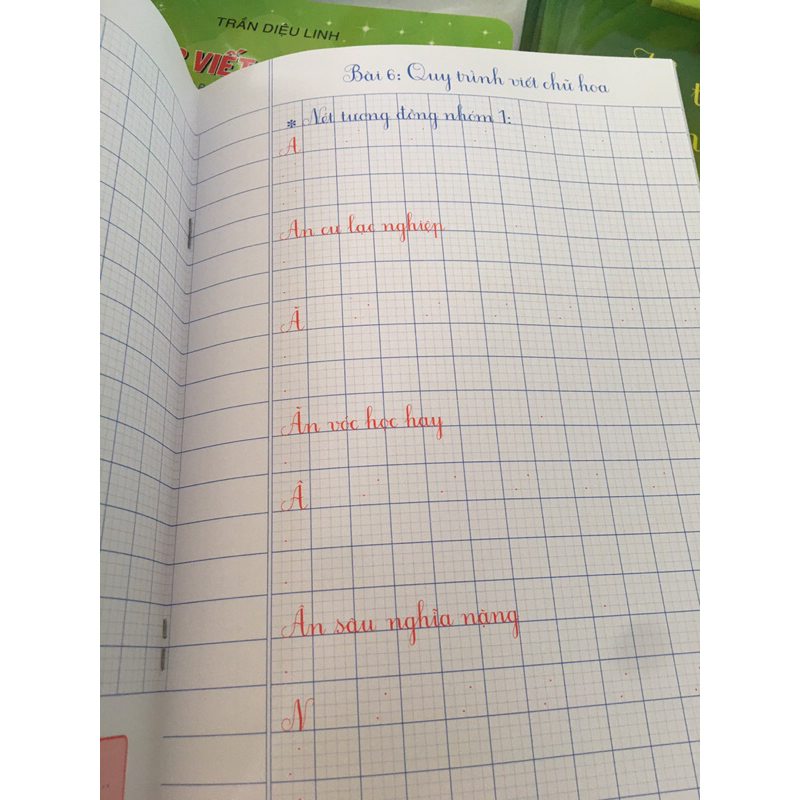 TRẦN DIỆU LINH
VIẾT
Bài 6: Quy trình viết chữ hoa
* Nét tương đồng nhóm 1:
A
An cư lạc nghiệp
Ă
Ăn vóc học hay
Â
Ân sâu nghĩa nặng
N